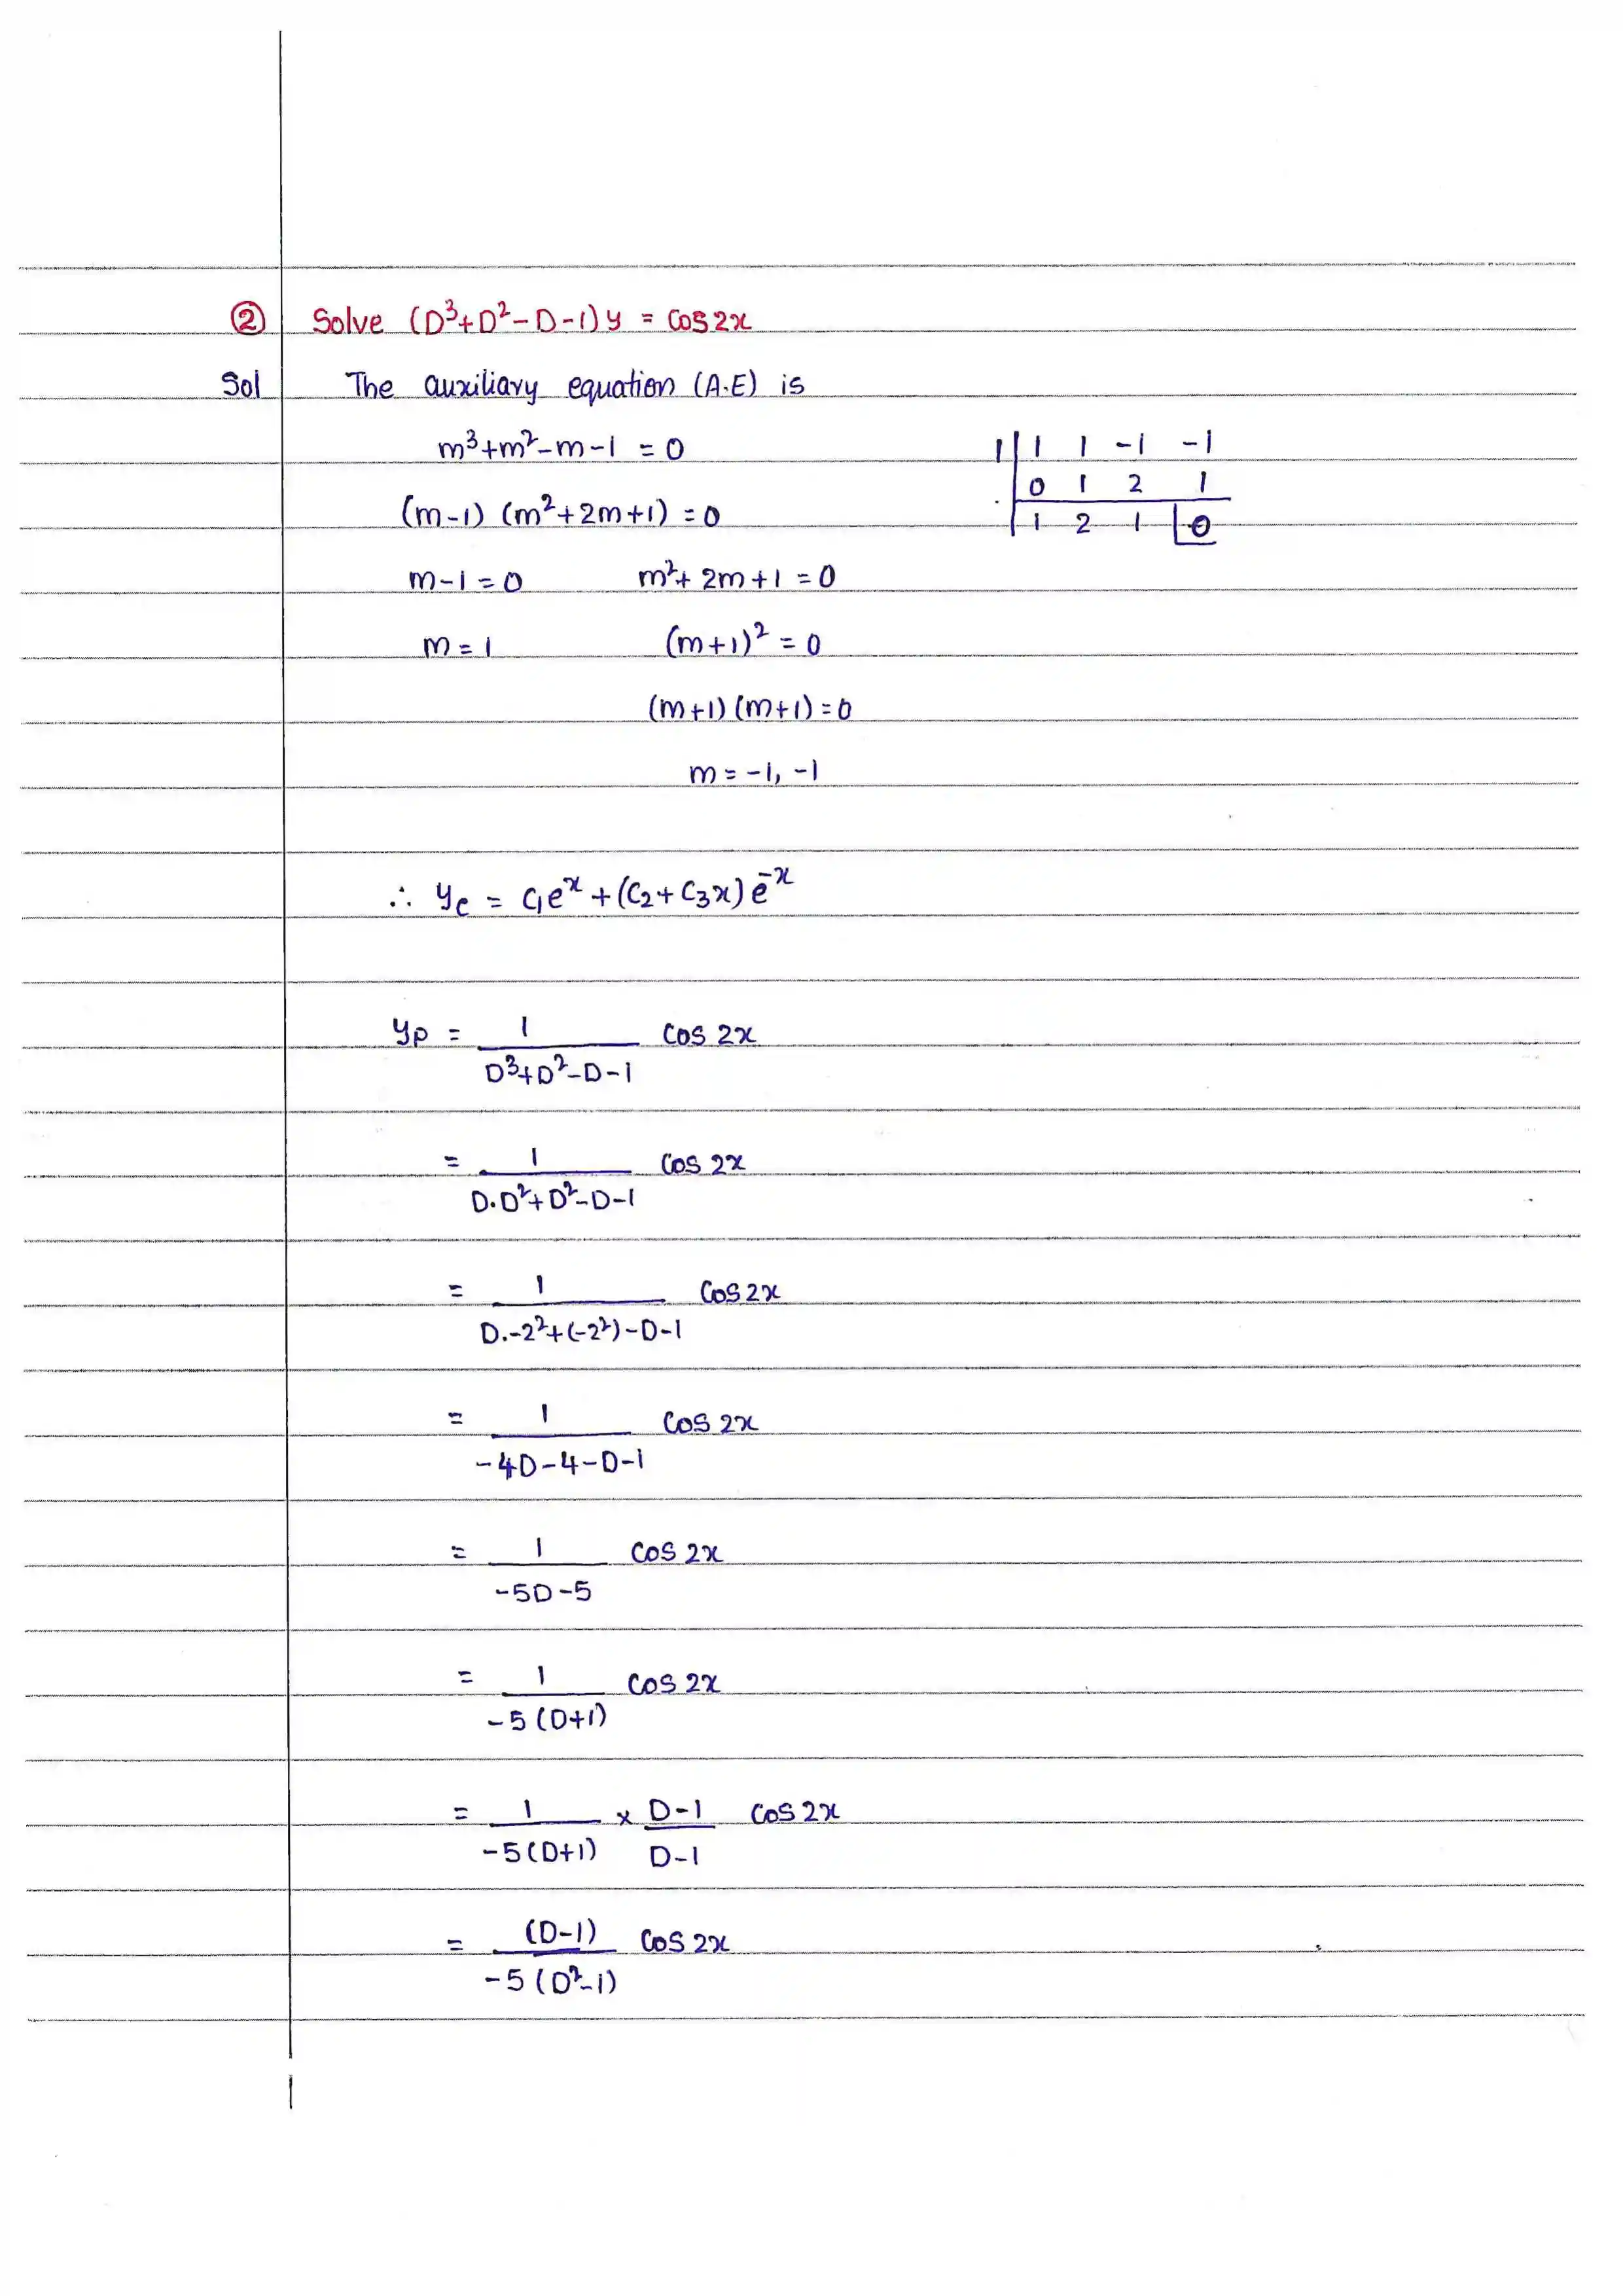 ② Solve (D³+D²-D-1)y = cos2x
Sol The auxiliary equation (A.E) is
m³+m²-m-1 = 0
1 | 1 1 -1 -1
(m-1) (m²+2m+1) = 0
0 1 2 1
1 2 1 | 0
m-1 = 0 m²+2m+1 = 0
m = 1 (m+1)² = 0
(m+1) (m+1) = 0
m = -1, -1
∴ y_c = c₁eˣ + (c₂+c₃x) e⁻ˣ
y_p = 1 / (D³+D²-D-1) cos 2x
= 1 / (D.D²+D²-D-1) cos 2x
= 1 / (D.-2²+(-2²)-D-1) cos 2x
= 1 / (-4D-4-D-1) cos 2x
= 1 / (-5D-5) cos 2x
= 1 / (-5(D+1)) cos 2x
= 1 / (-5(D+1)) × (D-1) / (D-1) cos 2x
= (D-1) / (-5(D²-1)) cos 2x